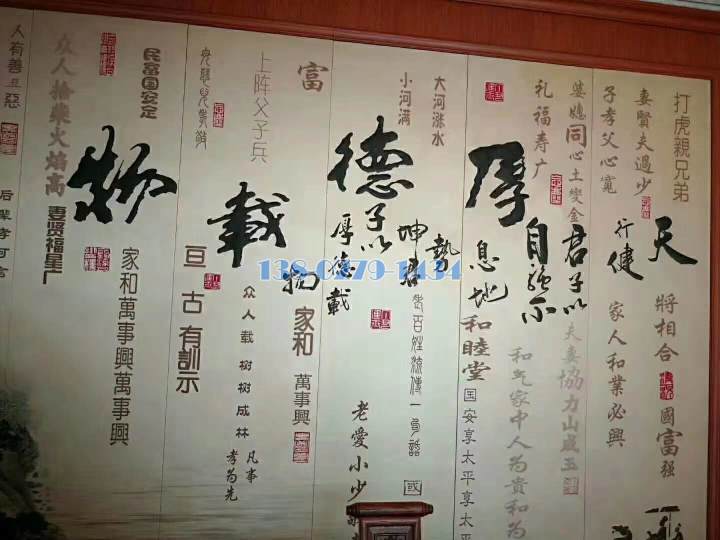 打虎親兄弟
天
將相合
國富强
妻賢夫過少
子孝父心寬
行健
家人和業必興
婆媳同心土變金
君子以
夫妻協力山成玉
礼福寿广
自强不
和气家中人为贵和为
厚
息地
和睦堂
国安享太平享太平
大河涨水
小河满
勢
坤君
老百姓流傳一句話
國
德
子以
厚德載
老愛小少
富
上阵父子兵
物
家和
萬事興
載
众人栽树树成林
凡事
孝为先
亘古有訓示
民富国安定
物
家和萬事興萬事興
众人拾柴火焰高
妻贤福星广
人有善
惡
后辈孝可言
138 0279 1434